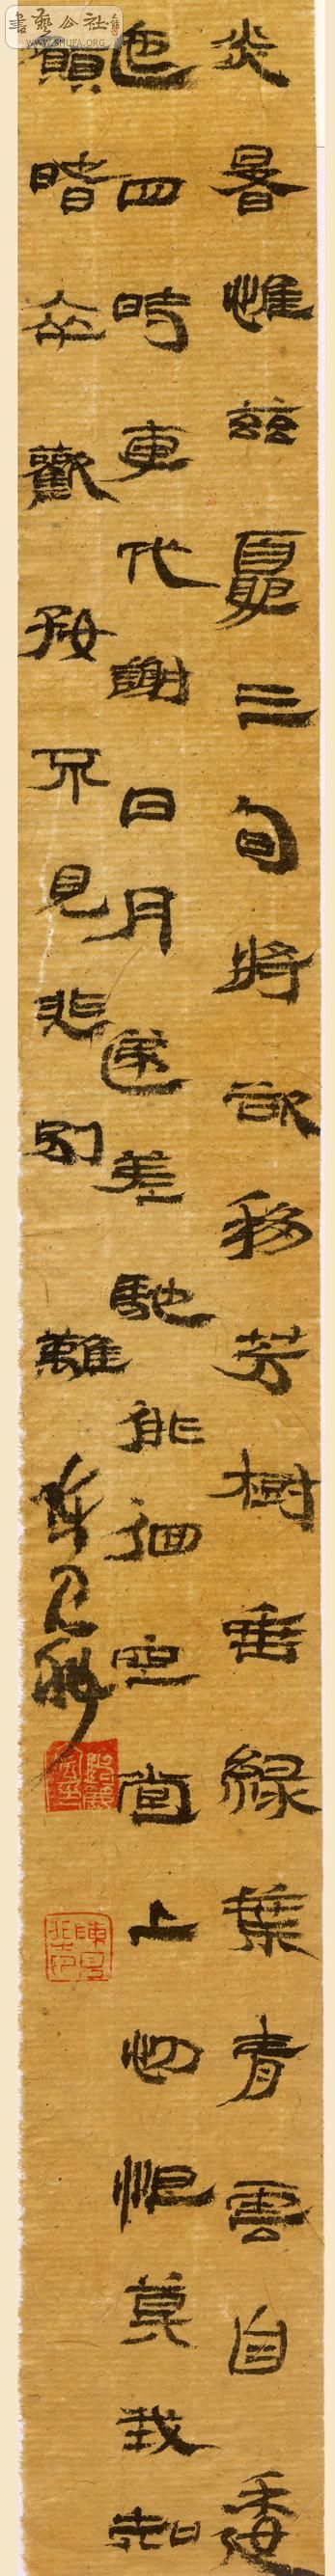 炎暑惟兹夏三旬將欲移芳樹垂緑葉青雲自逶
迤四時更代謝日月遞差馳徘徊空堂上忉怛莫我知
願睹卒歡好不見悲別離
書藝公社
WWW.SHUFA.ORG